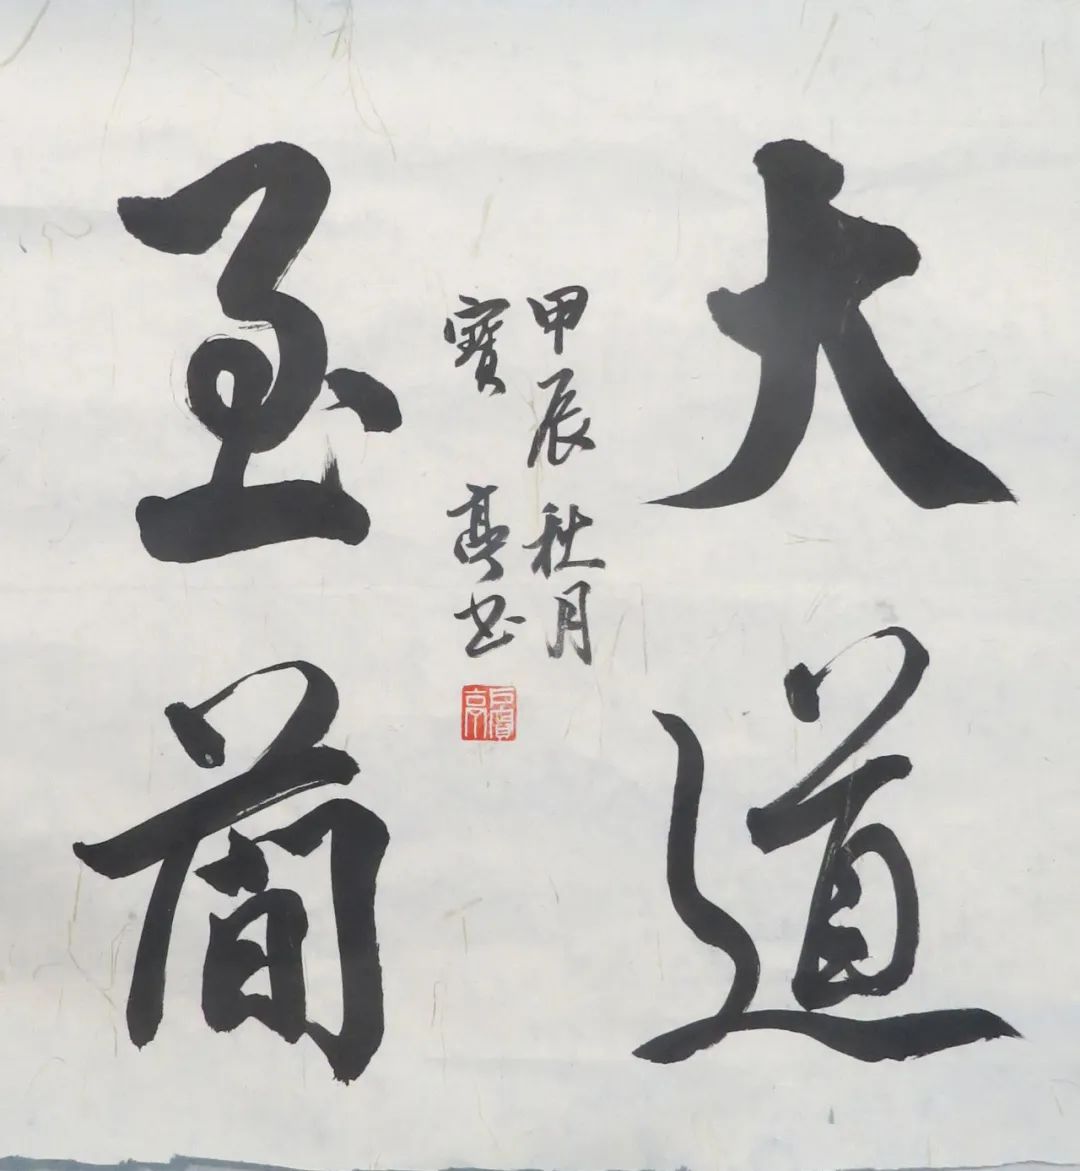 大道
至簡
甲辰秋月
寶亭书